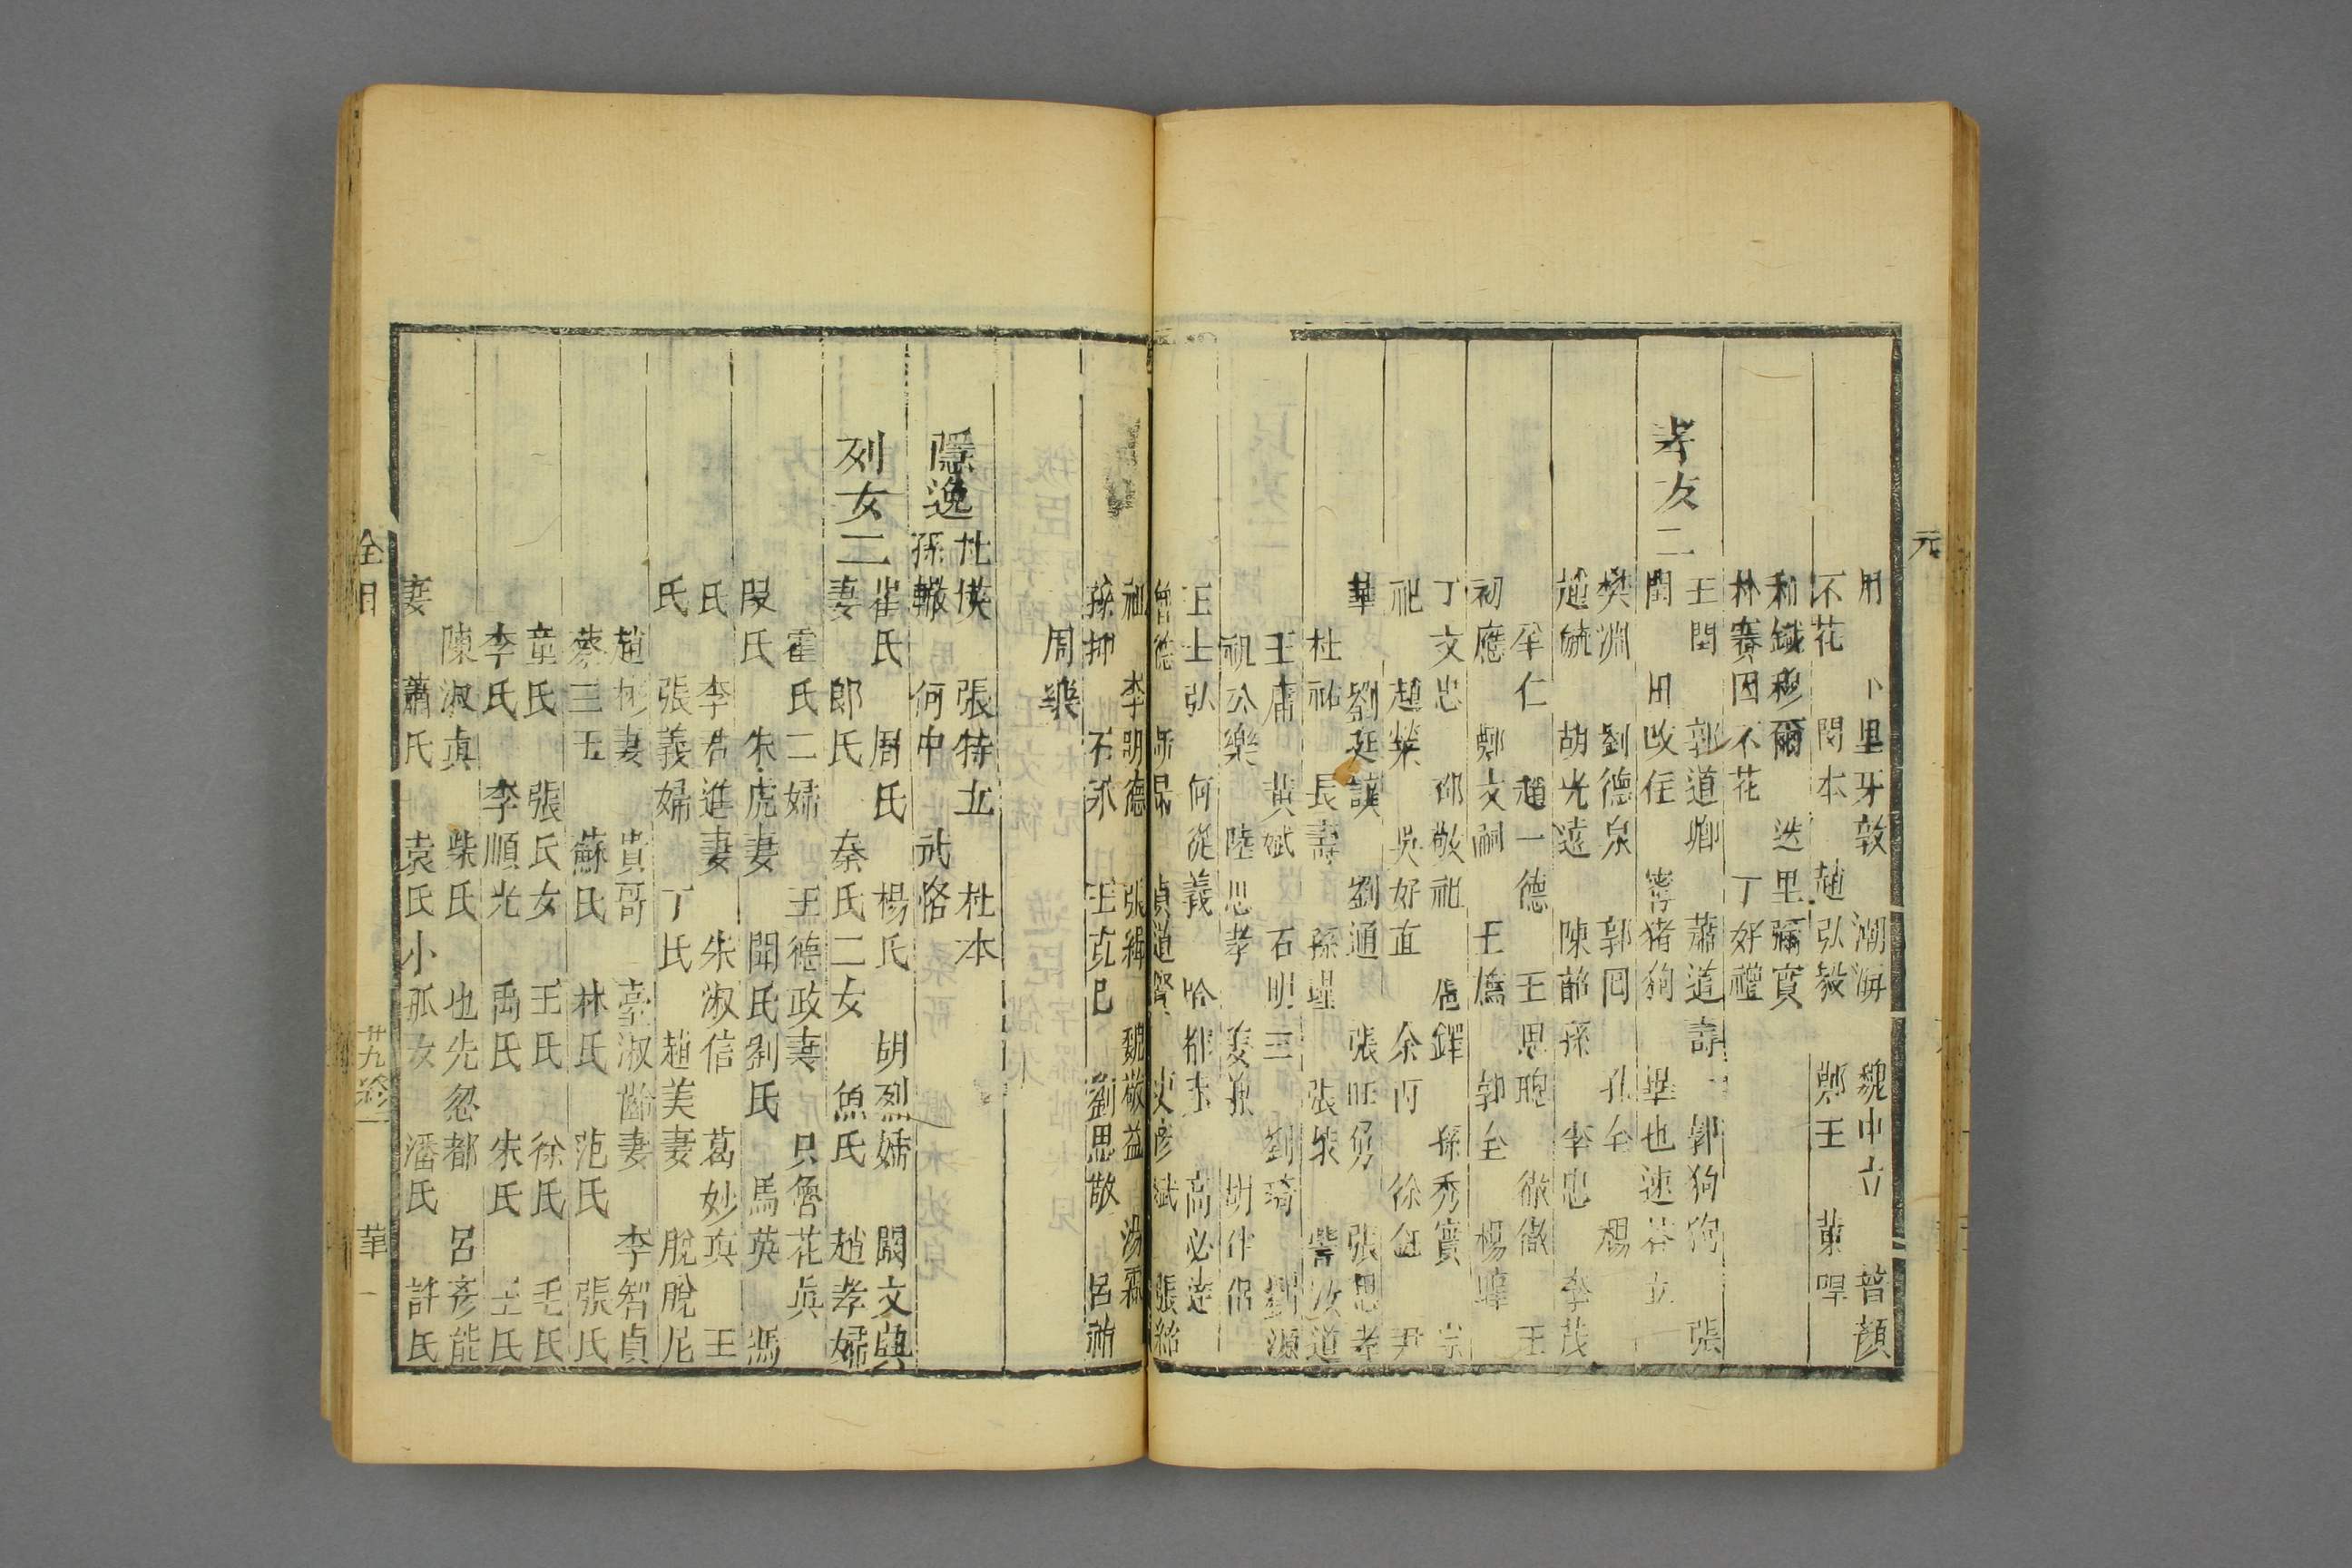 元
用 卜里牙敦 潮海 魏中立 普顏
不花 閔本 趙弘毅 鄭玉 黃冔
和鐵穆爾 迭里彌實
林賽因不花 丁好禮
孝友二
王閏 郭道卿 蕭道壽 郭狗狗 張
閏 田改住 甯猪狗 畢也速荅立
樊淵 劉德泉 郭回 孔全 楊
趙毓 胡光遠 陳韶孫 李忠 李茂
羊仁 趙一德 王思聰 徹徹 王
初應 鄭文嗣 王薦 郭全 楊皞
丁文忠 邵敬祖 扈鐸 孫秀實 宗
祀 趙榮 吳好直 余丙 徐鈺 尹
莘 劉廷讓 劉通 張旺舅 張思孝
杜祐 長壽 孫瑾 張恭 訾汝道
王庸 黃贇 石明三 劉琦 劉源
祝公榮 陸思孝 姜兼 胡伴侶
王士弘 何從義 哈都赤 高必達
曾德 靳昺 黃道賢 史彥斌 張紹
祖 李明德 張緝 魏敬益 湯霖
孫抑 石永 王克已 劉思敬 呂祐
周樂
隱逸
杜瑛 張特立 杜本
孫轍 何中 武恪
列女二
崔氏 周氏 楊氏 胡烈婦 闞文興
妻 郎氏 秦氏二女 焦氏 趙孝婦
霍氏二婦 王德政妻 只魯花真
段氏 朱虎妻 聞氏 劉氏 馬英 馮
氏 李君進妻 朱淑信 葛妙真 王
氏 張義婦 丁氏 趙美妻 脫脫尼
趙彬妻 貴哥 臺淑齡妻 李智貞
蔡三玉 蘇氏 林氏 范氏 張氏
童氏 張氏女 王氏 徐氏 毛氏
李氏 李順光 禹氏 朱氏 王氏
陳淑真 柴氏 也先忽都 呂彥能
妻 蕭氏 袁氏小孤女 潘氏 許氏
全目
廿九卷 一
莘